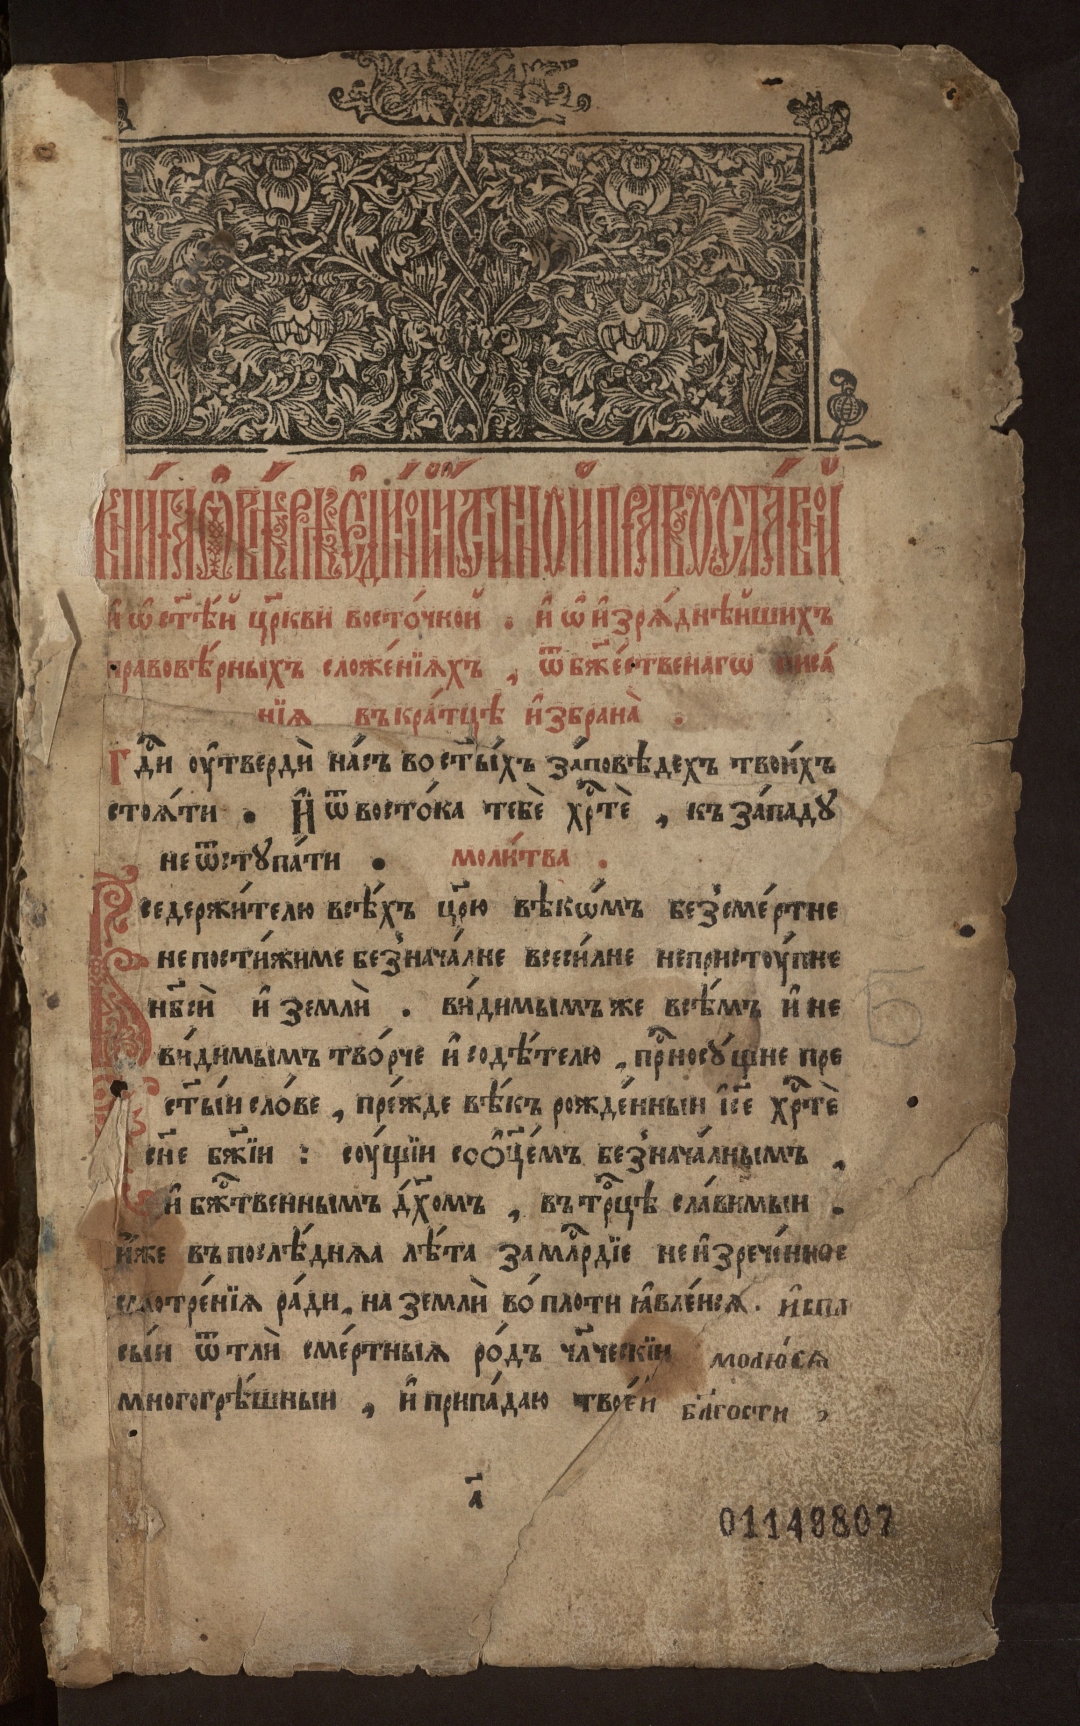 кни́га ѡ҆ вѣ́рѣ є҆ди́ной и҆́стинной правосла́вной
и҆ ѡ҆ ст҃ѣ́й цр҃кви восто́чной . и҆ ѡ҆ и҆зрѧ́днѣйшихъ
правовѣ́рныхъ сложе́нїѧхъ , ѿ бж҃е́ственагѡ писа́
нїѧ въкра́тцѣ и҆збрана̀ .
Гд҃и оу҆твердѝ на́съ во ст҃ы́хъ за́повѣдехъ твои́хъ
стоѧ́ти . И҆ ѿ восто́ка тебѐ хрⷭ҇тѐ , къ за́падꙋ
не ѿстꙋпа́ти . моли́тва .
Вседержи́телю всѣ́хъ цр҃ю вѣкѡ́мъ безсме́ртне
непости́жиме безнача́лне всеси́лне непристоу́пне
нб҃сѝ и҆ землѝ . ви́димымъ же всѣ́мъ и҆ не
ви́димымъ тво́рче и҆ содѣ́телю , прⷭ҇носꙋ́щне пре
ст҃ы́и сло́ве , пре́жде вѣ́къ рожде́нныи і҆с҃е хрⷭ҇тѐ
сн҃е бж҃їи : соу́щїи со ѻ҆ц҃е́мъ безнача́лнымъ ,
и҆ бжⷭ҇твеннымъ дх҃омъ , въ трⷪ҇цѣ сла́вимыи .
и҆́же въ послѣ́днѧѧ лѣ́та за млⷭ҇рдїе неи҆зрече́нное
смотре́нїѧ ра́ди , на землѝ во́ плоти ꙗ҆вле́йсѧ . и҆ спⷭ҇
сы́и ѿ тлѝ сме́ртныѧ ро́дъ чл҃ческїи молю́сѧ
многогрѣ́шныи , и҆ припа́даю твое́й бл҃гости ,
а҃
01149807
Б